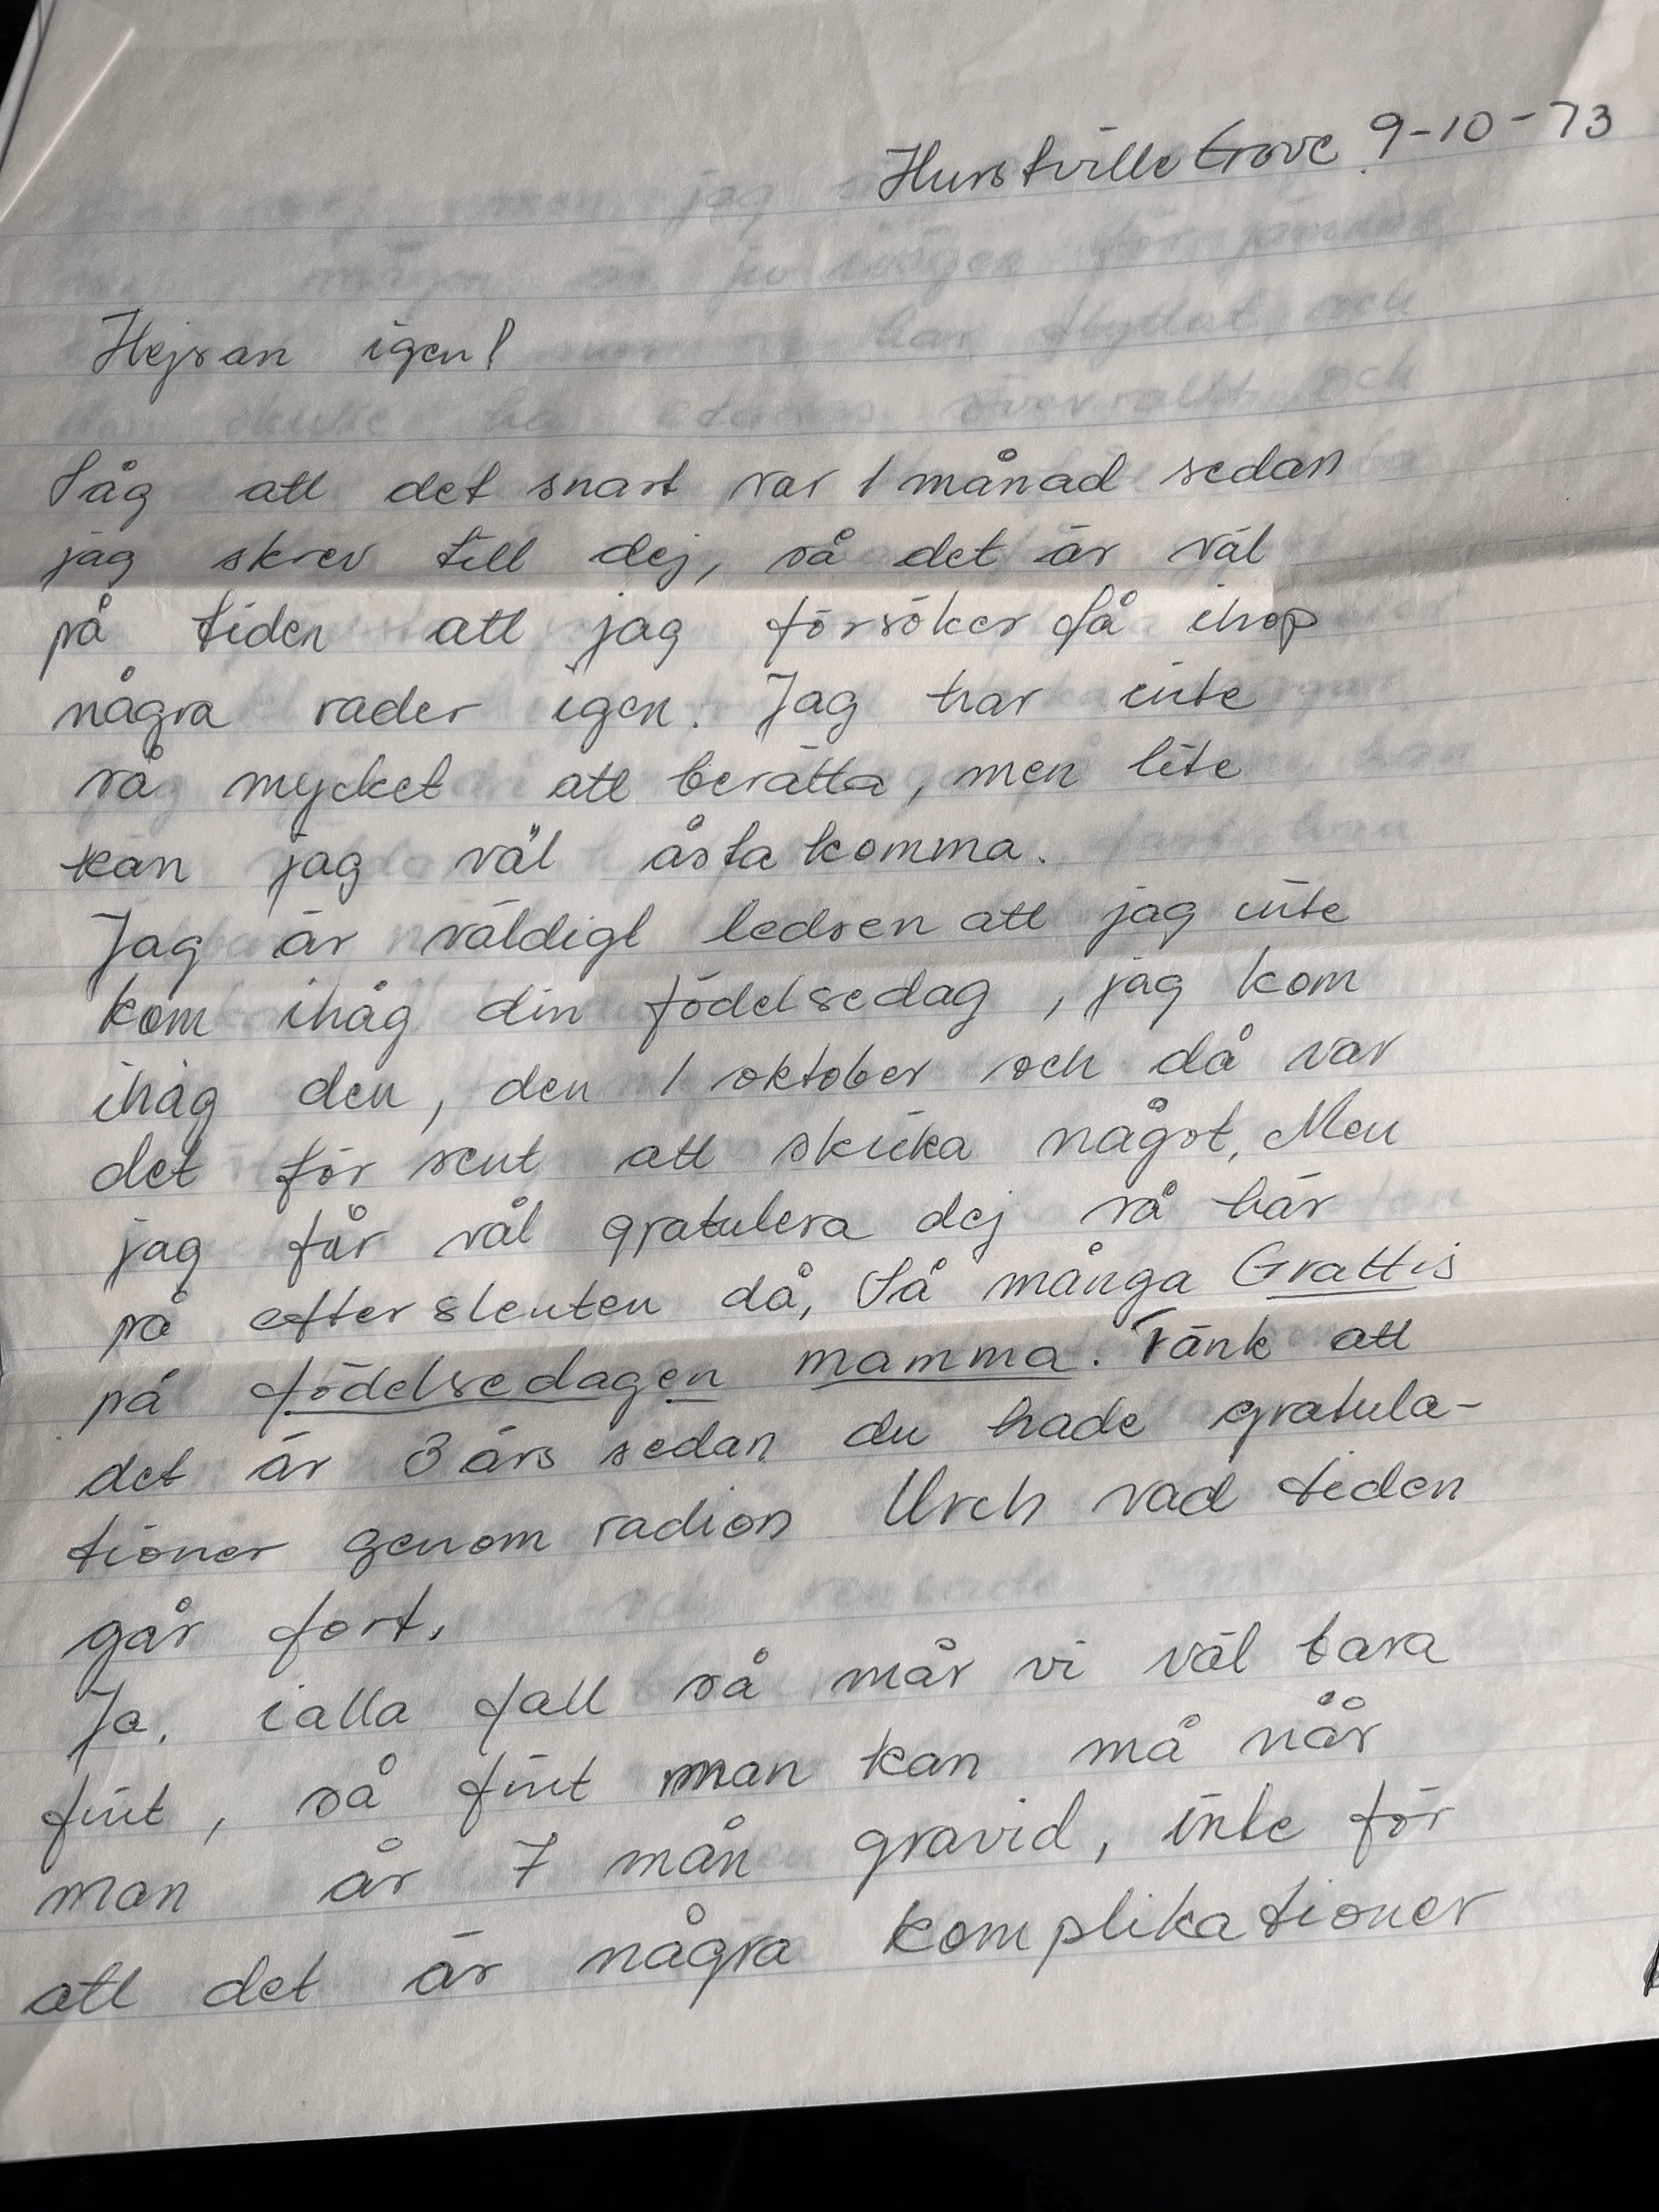 Hurstville Grove 9-10-73
Hejsan igen!
Såg att det snart var 1 månad sedan
jag skrev till dej, så det är väl
på tiden att jag försöker få ihop
några rader igen. Jag har inte
så mycket att berätta, men lite
kan jag väl åstakomma.
Jag är väldigt ledsen att jag inte
kom ihåg din födelsedag, jag kom
ihåg den, den 1 oktober och då var
det för sent att skicka något. Men
jag får väl gratulera dej så här
på efterslenten då, Så många Grattis
på födelsedagen mamma. Tänk att
det är 3 års sedan du hade gratula-
tioner genom radion Urch vad tiden
går fort.
Ja, i alla fall så mår vi väl bara
fint, så fint man kan må når
man är 7 mån gravid, inte för
att det är några komplikationer